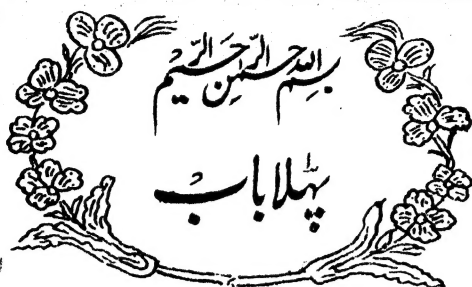 بسم اللہ الرحمٰن الرحیم
پہلا باب